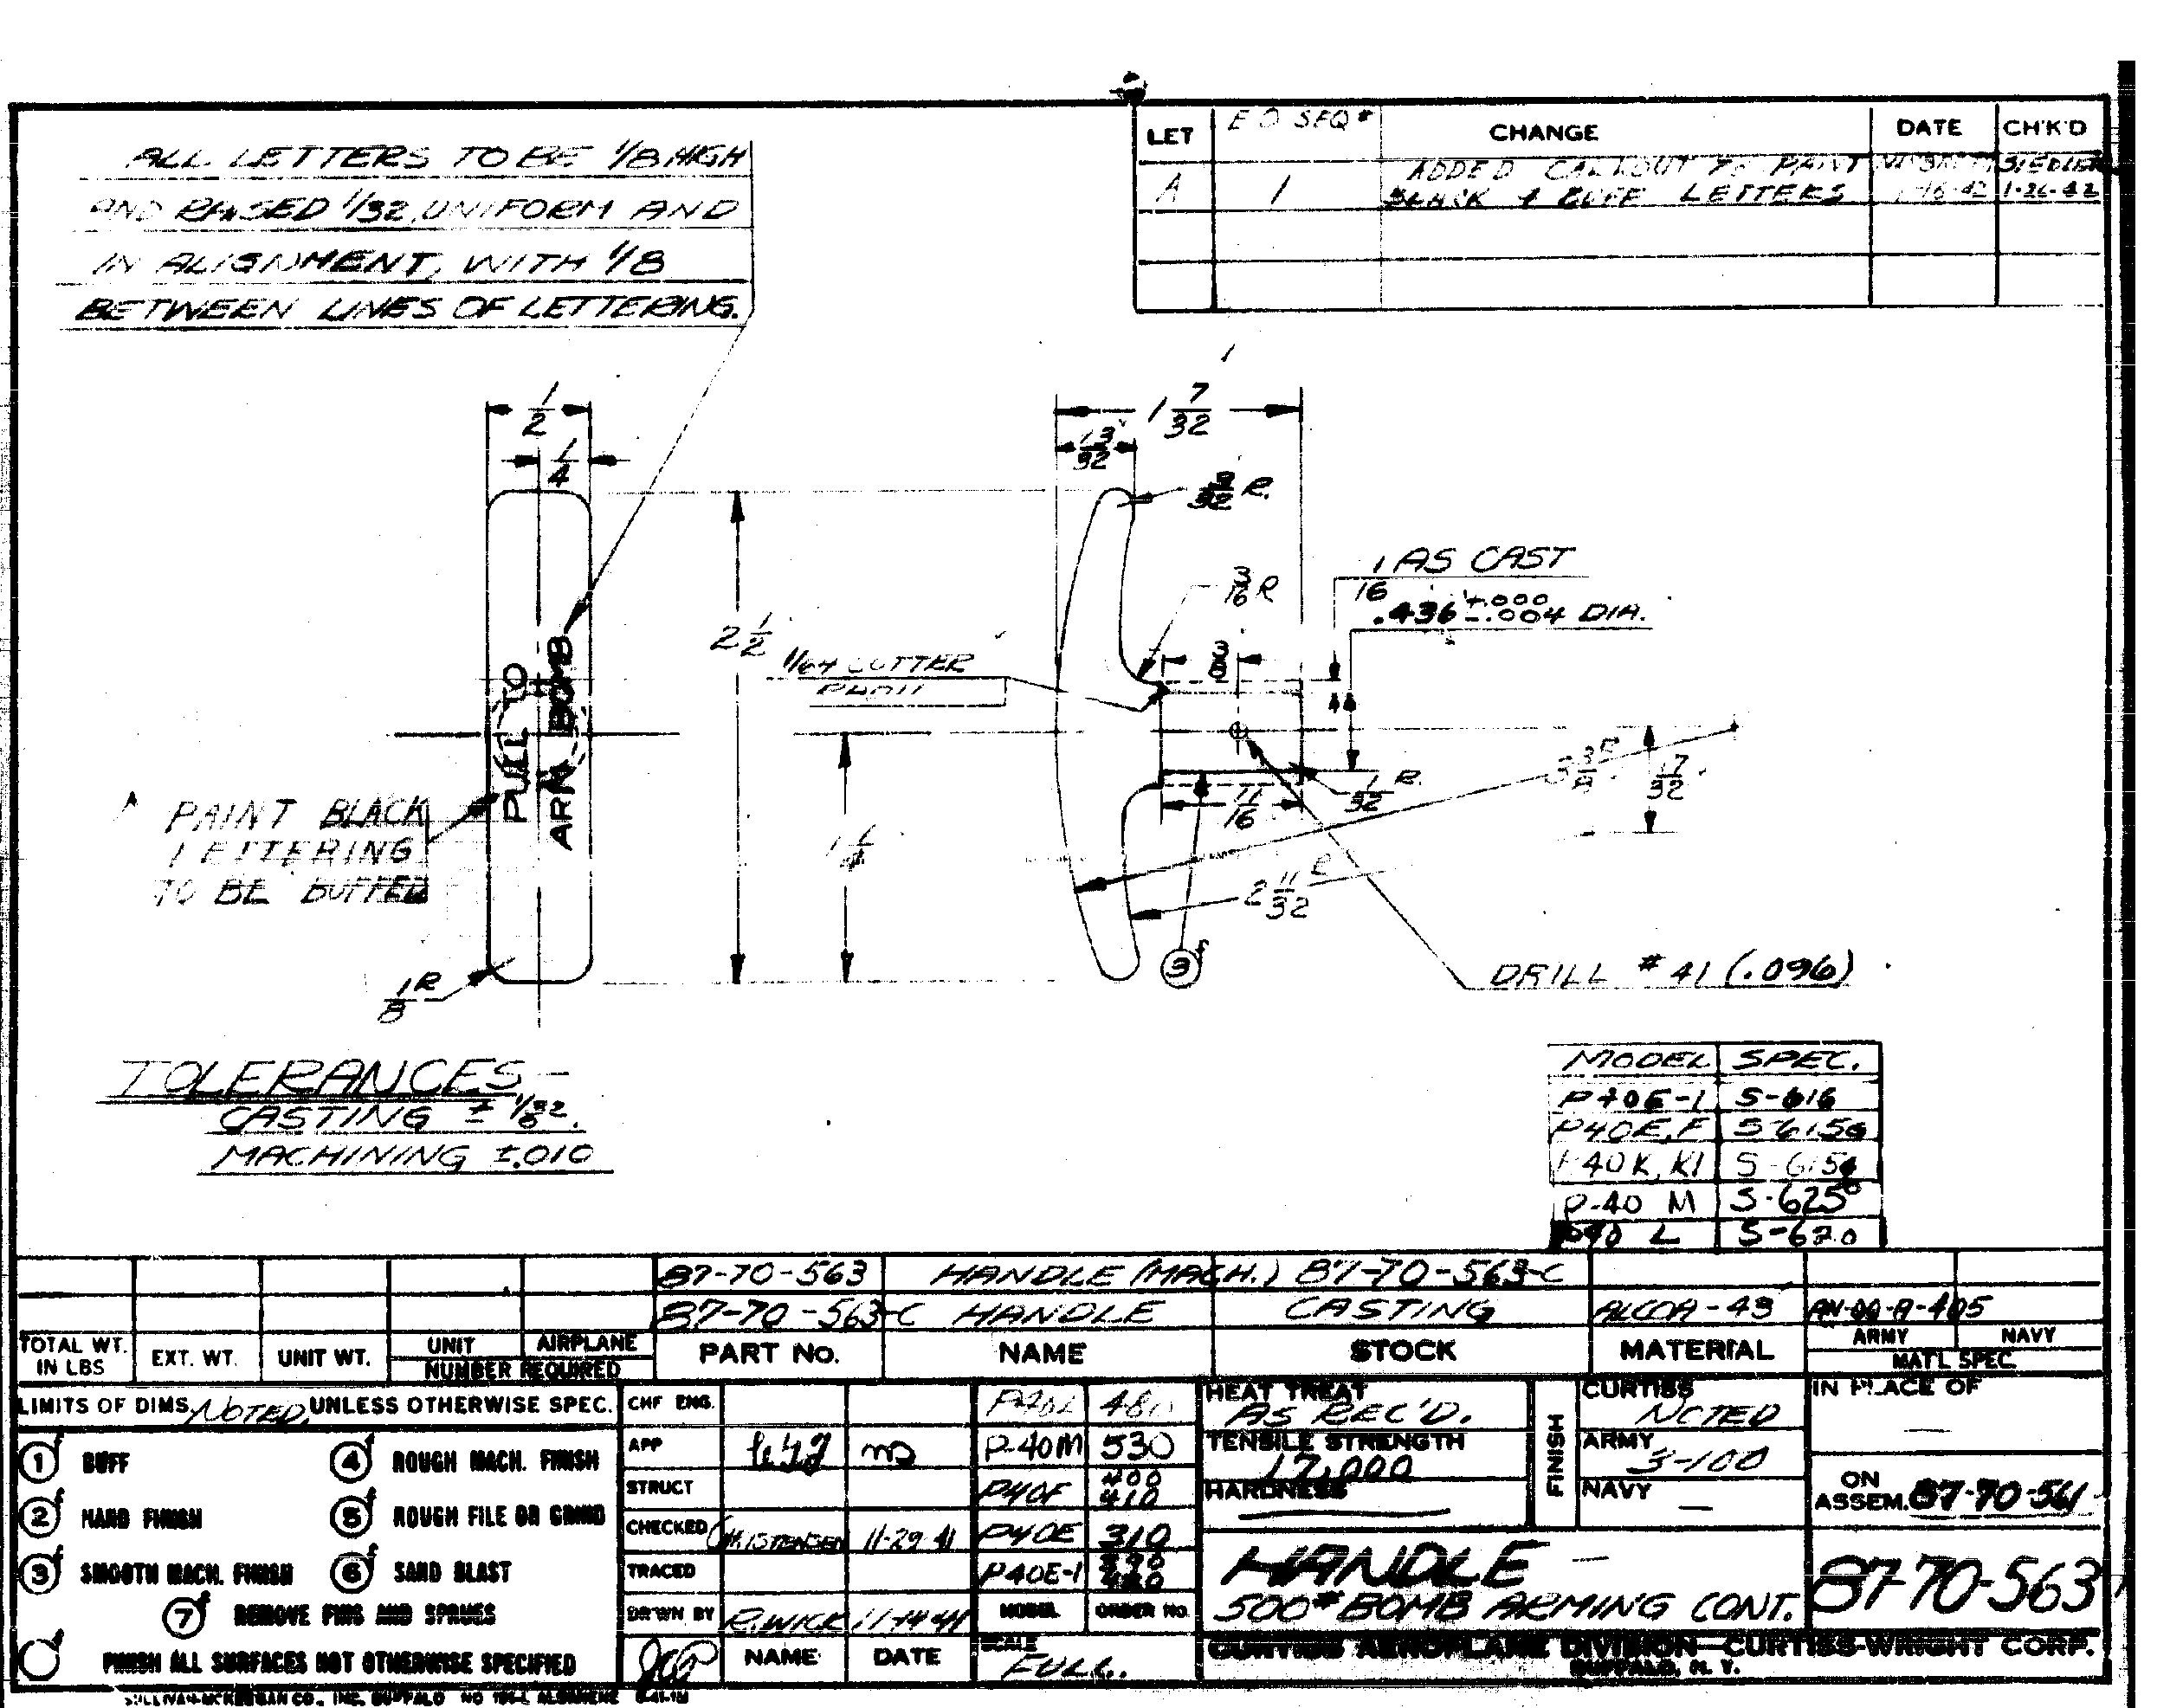 ALL LETTERS TO BE 1/8 HIGH
AND RAISED 1/32, UNIFORM AND
IN ALIGNMENT, WITH 1/8
BETWEEN LINES OF LETTERING.
LET E O SEQ # CHANGE DATE CH'K'D
A 1 ADDED CALLOUT TO PAINT
BLACK & BUFF LETTERS 1-16-42 1-26-42
1/2
1/4
1 7/32
13/32
3/32 R.
3/16 R
1/16 AS CAST
.436 +.000 -.004 DIA.
2 1/2
1/64 CUTTER
RADII
3/8
PULL TO
ARM BOMB
PAINT BLACK
LETTERING
TO BE BUFFED
1 1/4
11/16
1/32 R.
3 3/8 R.
17/32
2 11/32 R
3 f
DRILL #41 (.096)
1/8 R
TOLERANCES-
CASTING ± 1/32.
MACHINING ±.010
MODEL SPEC.
P40E-1 S-616
P40E,F S-615
P40K,K1 S-615
P-40 M S-625
P40 L S-620
87-70-563 HANDLE (MACH.) 87-70-563-C
87-70-563-C HANDLE CASTING ALCOA-43
TOTAL WT. IN LBS EXT. WT. UNIT WT. UNIT AIRPLANE NUMBER REQUIRED PART NO. NAME STOCK MATERIAL ARMY NAVY MAT'L SPEC
LIMITS OF DIMS. NOTED UNLESS OTHERWISE SPEC.
1 f BUFF
2 f HAND FINISH
3 f SMOOTH MACH. FINISH
4 f ROUGH MACH. FINISH
5 f ROUGH FILE OR GRIND
6 f SAND BLAST
7 f REMOVE FINS AND SPRUES
FINISH ALL SURFACES NOT OTHERWISE SPECIFIED
CHF ENG.
APP
STRUCT
CHECKED CHRISTENSEN 11-29-41
TRACED
DR'WN BY R.WICK 11-14-41
NAME DATE
P40L 480
P-40M 530
P40F 400 410
P40E 310
P40E-1
MODEL ORDER NO.
SCALE FULL.
HEAT TREAT AS REC'D.
TENSILE STRENGTH 17,000
HARDNESS
FINISH
CURTISS NOTED
ARMY 3-100
NAVY —
IN PLACE OF —
ON ASSEM. 87-70-561
HANDLE —
500# BOMB ARMING CONT.
87-70-563
CURTISS AEROPLANE DIVISION—CURTISS-WRIGHT CORP.
BUFFALO, N. Y.